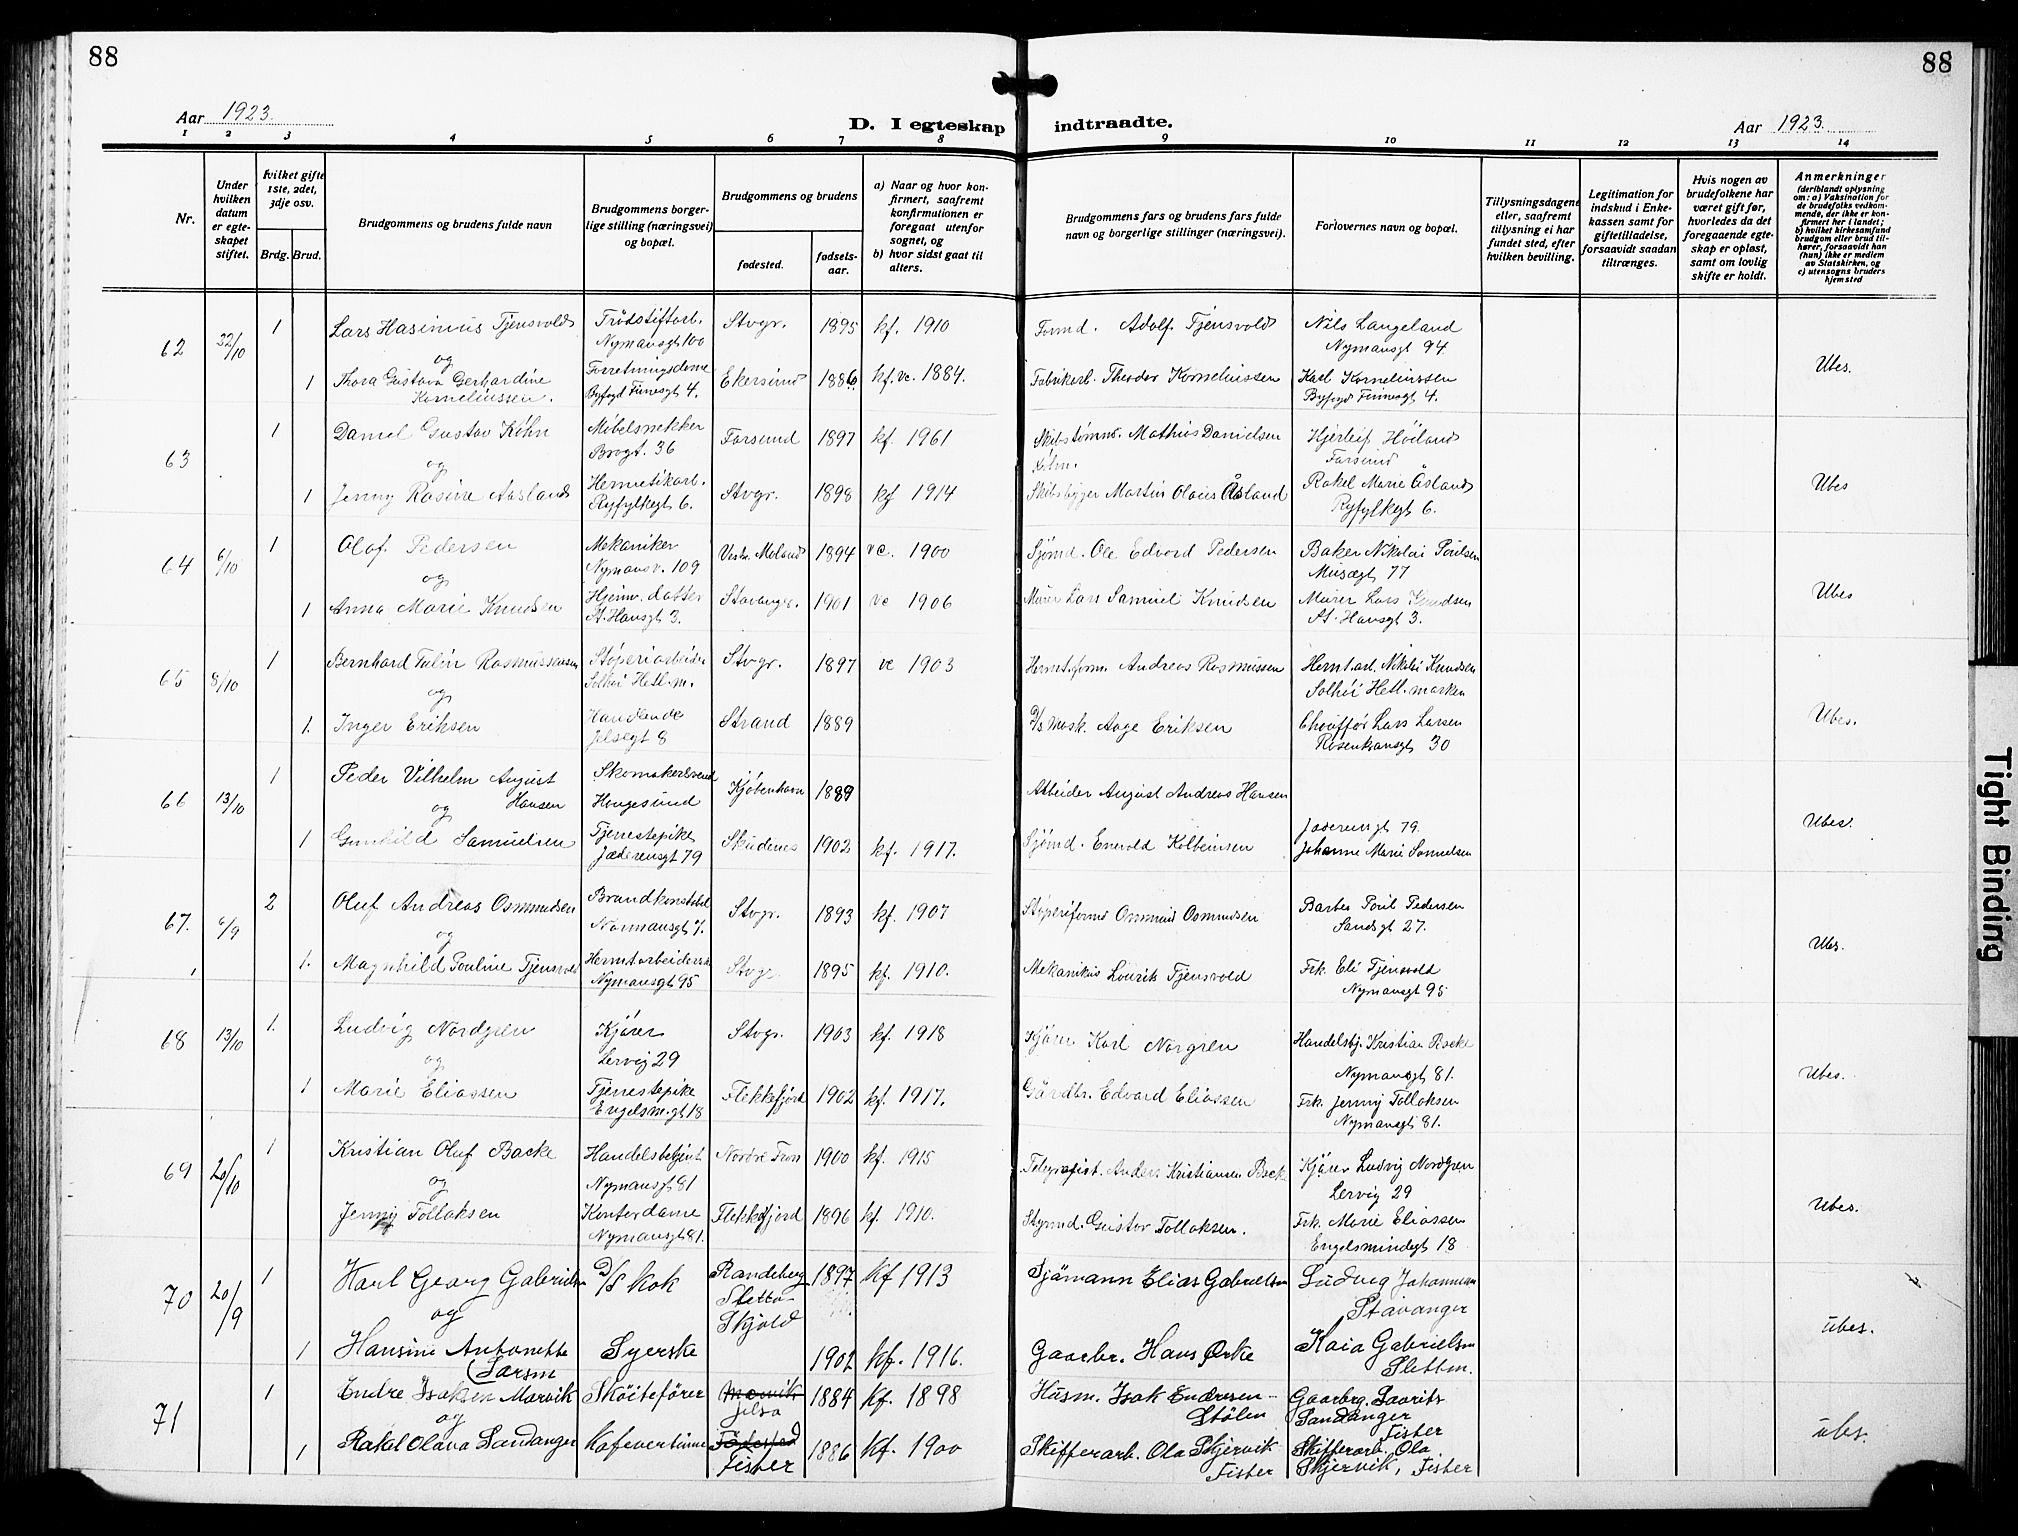 88
88
Aar 1923.
D. I egteskap indtraadte.
Aar 1923.
1 2 3 4 5 6 7 8 9 10 11 12 13 14
Nr.
Under hvilken datum er egteskapet stiftet.
hvilket gifte 1ste, 2det, 3dje osv.
Brdg. Brud.
Brudgommens og brudens fulde navn
Brudgommens borgerlige stilling (næringsvei) og bopæl.
Brudgommens og brudens
fødested.
fødselsaar.
a) Naar og hvor konfirmert, saafremt konfirmationen er foregaat utenfor sognet, og
b) hvor sidst gaat til alters.
Brudgommens fars og brudens fars fulde navn og borgerlige stillinger (næringsvei).
Forlovernes navn og bopæl.
Tillysningsdagene eller, saafremt tillysning ei har fundet sted, efter hvilken bevilling.
Legitimation for indskud i Enkekassen samt for giftetilladelse, forsaavidt saadan tiltrænges.
Hvis nogen av brudefolkene har været gift før, hvorledes da det foregaaende egteskap er opløst, samt om lovlig skifte er holdt.
Anmerkninger (deriblandt oplysning om: a) Vaksination for de brudefolks vedkommende, der ikke er konfirmert her i landet; b) hvilket kirkesamfund brudgom eller brud tilhører, forsaavidt han (hun) ikke er medlem av Statskirken, og c) utensogns bruders hjemsted
62 22/10 1 Lars Hasinius Tjensvold Trådstiftarb. Nymansgt 100 Stvgr. 1895 kf. 1910 Formd. Adolf Tjensvold Nils Langeland Nymansgt 94
og
1 Thora Gustava Gerhardine Korneliussen. Forretningsdame Byfogd Finnesgt 4. Ekersund 1886 kf. vc. 1884. Fabrikarb. Theodor Korneliussen Karl Korneliussen Byfogd Finnesgt 4. Ubes.
63 1 Daniel Gustav Köhn Møbelsnekker Brogt. 36 Farsund 1897 kf 1961 Skibstømmr. Mathias Danielsen Köhn. Hjerleif Höiland Farsund
og
1 Jenny Rasine Aasland Hermetikarb. Ryfylkegt 6. Stvgr. 1898 kf 1914 Skibsbygger Martin Olaus Åsland Rakel Marie Åsland Ryfylkegt 6. Ubes
64 6/10 1 Olaf Pedersen Mekaniker Nymansv. 109 Vestr. Moland 1894 vc. 1900 Sjömd. Ole Edvard Pedersen Baker Nikolai Poulsen Musægt 77
og
1 Anna Marie Knudsen Hjemv. datter St. Hansgt 3. Stavanger. 1901 vc 1906 Murer Lars Samuel Knudsen Murer Lars Knudsen St. Hansgt 3. Ubes
65 8/10 1 Bernhard Tulin Rasmussen Støperiarbeider Solhöi Hetl. m. Stvgr. 1897 vc 1903 Hermt. form. Andreas Rasmussen Hermt.arb. Nikolai Knudsen Solhöi Hetl. marken
og
1. Inger Eriksen Handlende Jelsegt 8 Strand 1889 D/S Mask. Aage Eriksen Chauffør Lars Larsen Rosenkransgt 30 Ubes.
66 13/10 1 Peder Vilhelm August Hansen Skomakersvend Haugesund Kjøbenhavn 1889 Arbeider August Andreas Hansen
og
1 Gunhild Samuelsen Tjenestepike Jæderensgt 79 Skudenes 1902 kf. 1917. Sjömd. Enevold Kolbeinsen Jæderensgt 79. Johanne Marie Samuelsen Ubes.
67. 6/9 2 Oluf Andreas Osmundsen Brandkonstabel Normansgt 7. Stvgr. 1893 kf. 1907 Støperiformd Osmund Osmundsen Barber Poul Pedersen Sandsgt 27.
og
1. Magnhild Pouline Tjensvold Hermtarbeiderske Nymansgt 95 Stvgr. 1895 kf. 1910. Mekanikus Lourits Tjensvold Frk. Eli Tjensvold Nymansgt 95 Ubes.
68 13/10 1. Ludvig Nordgren Kjører Lervig 29 Stvgr. 1903 kf. 1918 Kjører Karl Norgren Handelsbj. Kristian Backe Nymansgt 81.
og
1 Marie Eliassen Tjenestepike Engelsm.gt 18 Flekkefjord 1902 kf. 1917. Gårdbr. Edvard Eliassen Frk. Jenny Tollaksen Nymansgt 81. Ubes.
69 20/10 1 Kristian Oluf Backe Handelsbetjent. Nymansgt 81 Nordre Fron 1900 kf. 1915 Telegrafist. Anders Kristiansen Backe Kjører Ludvig Nordgren Lervig 29
og
Jenny Tollaksen Kontordame Nymansgt 81. Flekkefjord 1896 kf. 1910. Styrmd. Gustav Tollaksen. Frk. Marie Eliassen Engelsmindegt 18 Ubes.
70 20/9 1 Karl Georg Gabrielsen D/S kok Randeberg Sletto Skjold 1897 kf 1913 Sjömann Elias Gabrielsen Ludvig Johannesen Stavanger
og
1 Hansine Antonette Larsen Syerske 1902 kf. 1916. Gaardbr. Hans Ørke Kaia Gabrielsen Sletten. ubes.
71 1 Endre Isaksen Marvik Skøitefører Marvik Jelsa 1884 kf. 1898 Husm. Isak Endresen Stølen Gaarbrg. Laurits Sandanger Fister
og
1 Rakel Olava Sandanger Kafevertinne Fister 1886 kf. 1900 Skifferarb. Ola Skjervik Fister Skifferarb. Ola Skjervik, Fister ubes.
Tight Binding